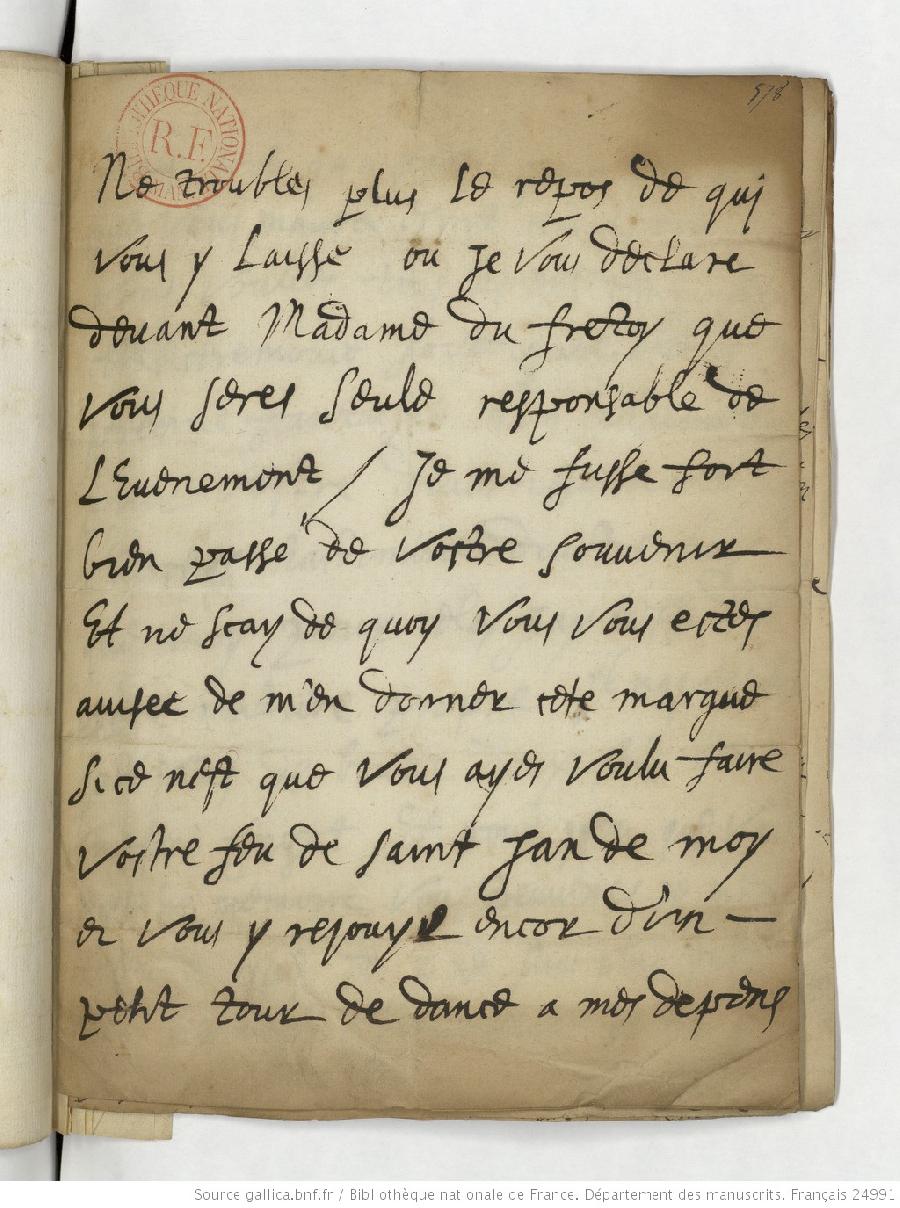 578
BIBLIOTHÈQUE NATIONALE
R.F.
MANUSCRITS
Ne troubles plus le repos de qui
vous y laisse ou je vous declare
devant Madame du fretoy que
vous seres seule responsable de
LEvenement / Je me fusse fort
bien passé de vostre souvenir
Et ne scay de quoy vous vous estes
avisee de m'en donner cete marque
si ce nest que vous ayes voulu faire
vostre feu de saint Jan de moy
et vous y rejouyr encor d'un
petit tour de dance a mes depens
Source gallica.bnf.fr / Bibliothèque nationale de France. Département des manuscrits. Français 24991